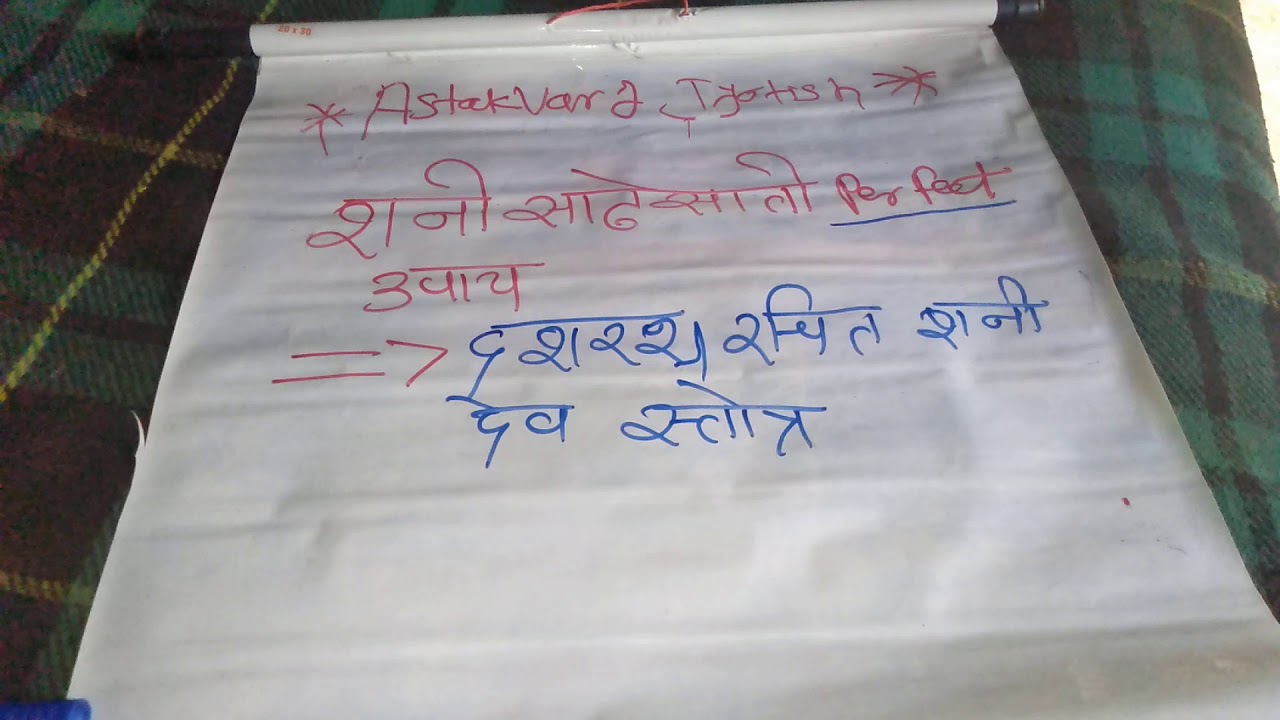 20 x 30
* Astakvarg Jyotish *
शनी साढेसाती Perfect
उपाय
=> दशरथ रचित शनी
देव स्तोत्र